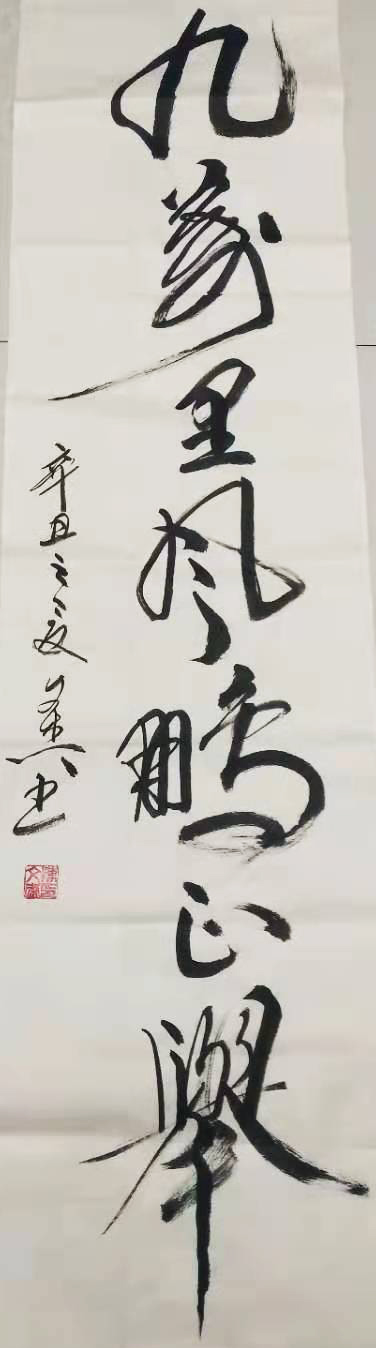 九萬里風鵬正舉
辛丑之夏
書